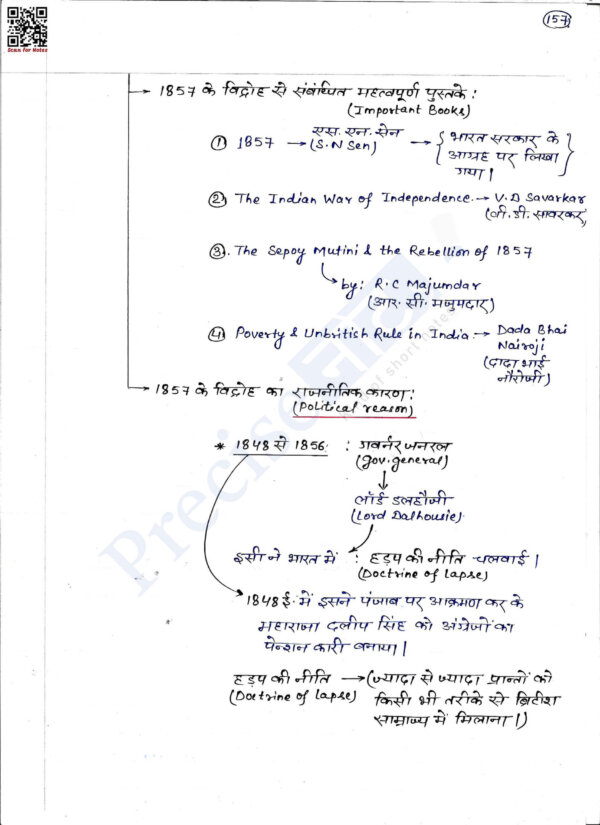 157
Scan For Notes
→ 1857 के विद्रोह से संबंधित महत्वपूर्ण पुस्तके :
(Important Books)
① 1857 → एस. एन. सेन (S.N Sen) → { भारत सरकार के
आग्रह पर लिखा
गया। }
②. The Indian War of Independence. → V.D Savarkar
(वी. डी. सावरकर)
③. The Sepoy Mutini & the Rebellion of 1857
by: R.C Majumdar
(आर. सी. मजूमदार)
④ Poverty & Unbritish Rule in India → Dada Bhai
Nairoji
(दादा भाई
नौरोजी)
→ 1857 के विद्रोह का राजनीतिक कारण :
(Political reason)
* 1848 से 1856 : गवर्नर जनरल
(Gov. general)
लॉर्ड डलहौजी
(Lord Dalhousie)
इसी ने भारत में : हड़प की नीति चलवाई।
(Doctrine of lapse)
1848 ई. में इसने पंजाब पर आक्रमण कर के
महाराजा दलीप सिंह को अंग्रेजों का
पेन्शन कारी बनाया।
हड़प की नीति → (ज्यादा से ज्यादा प्रान्तों को
(Doctrine of lapse) किसी भी तरीके से ब्रिटीश
साम्राज्य में मिलाना।)
Precise
short notes